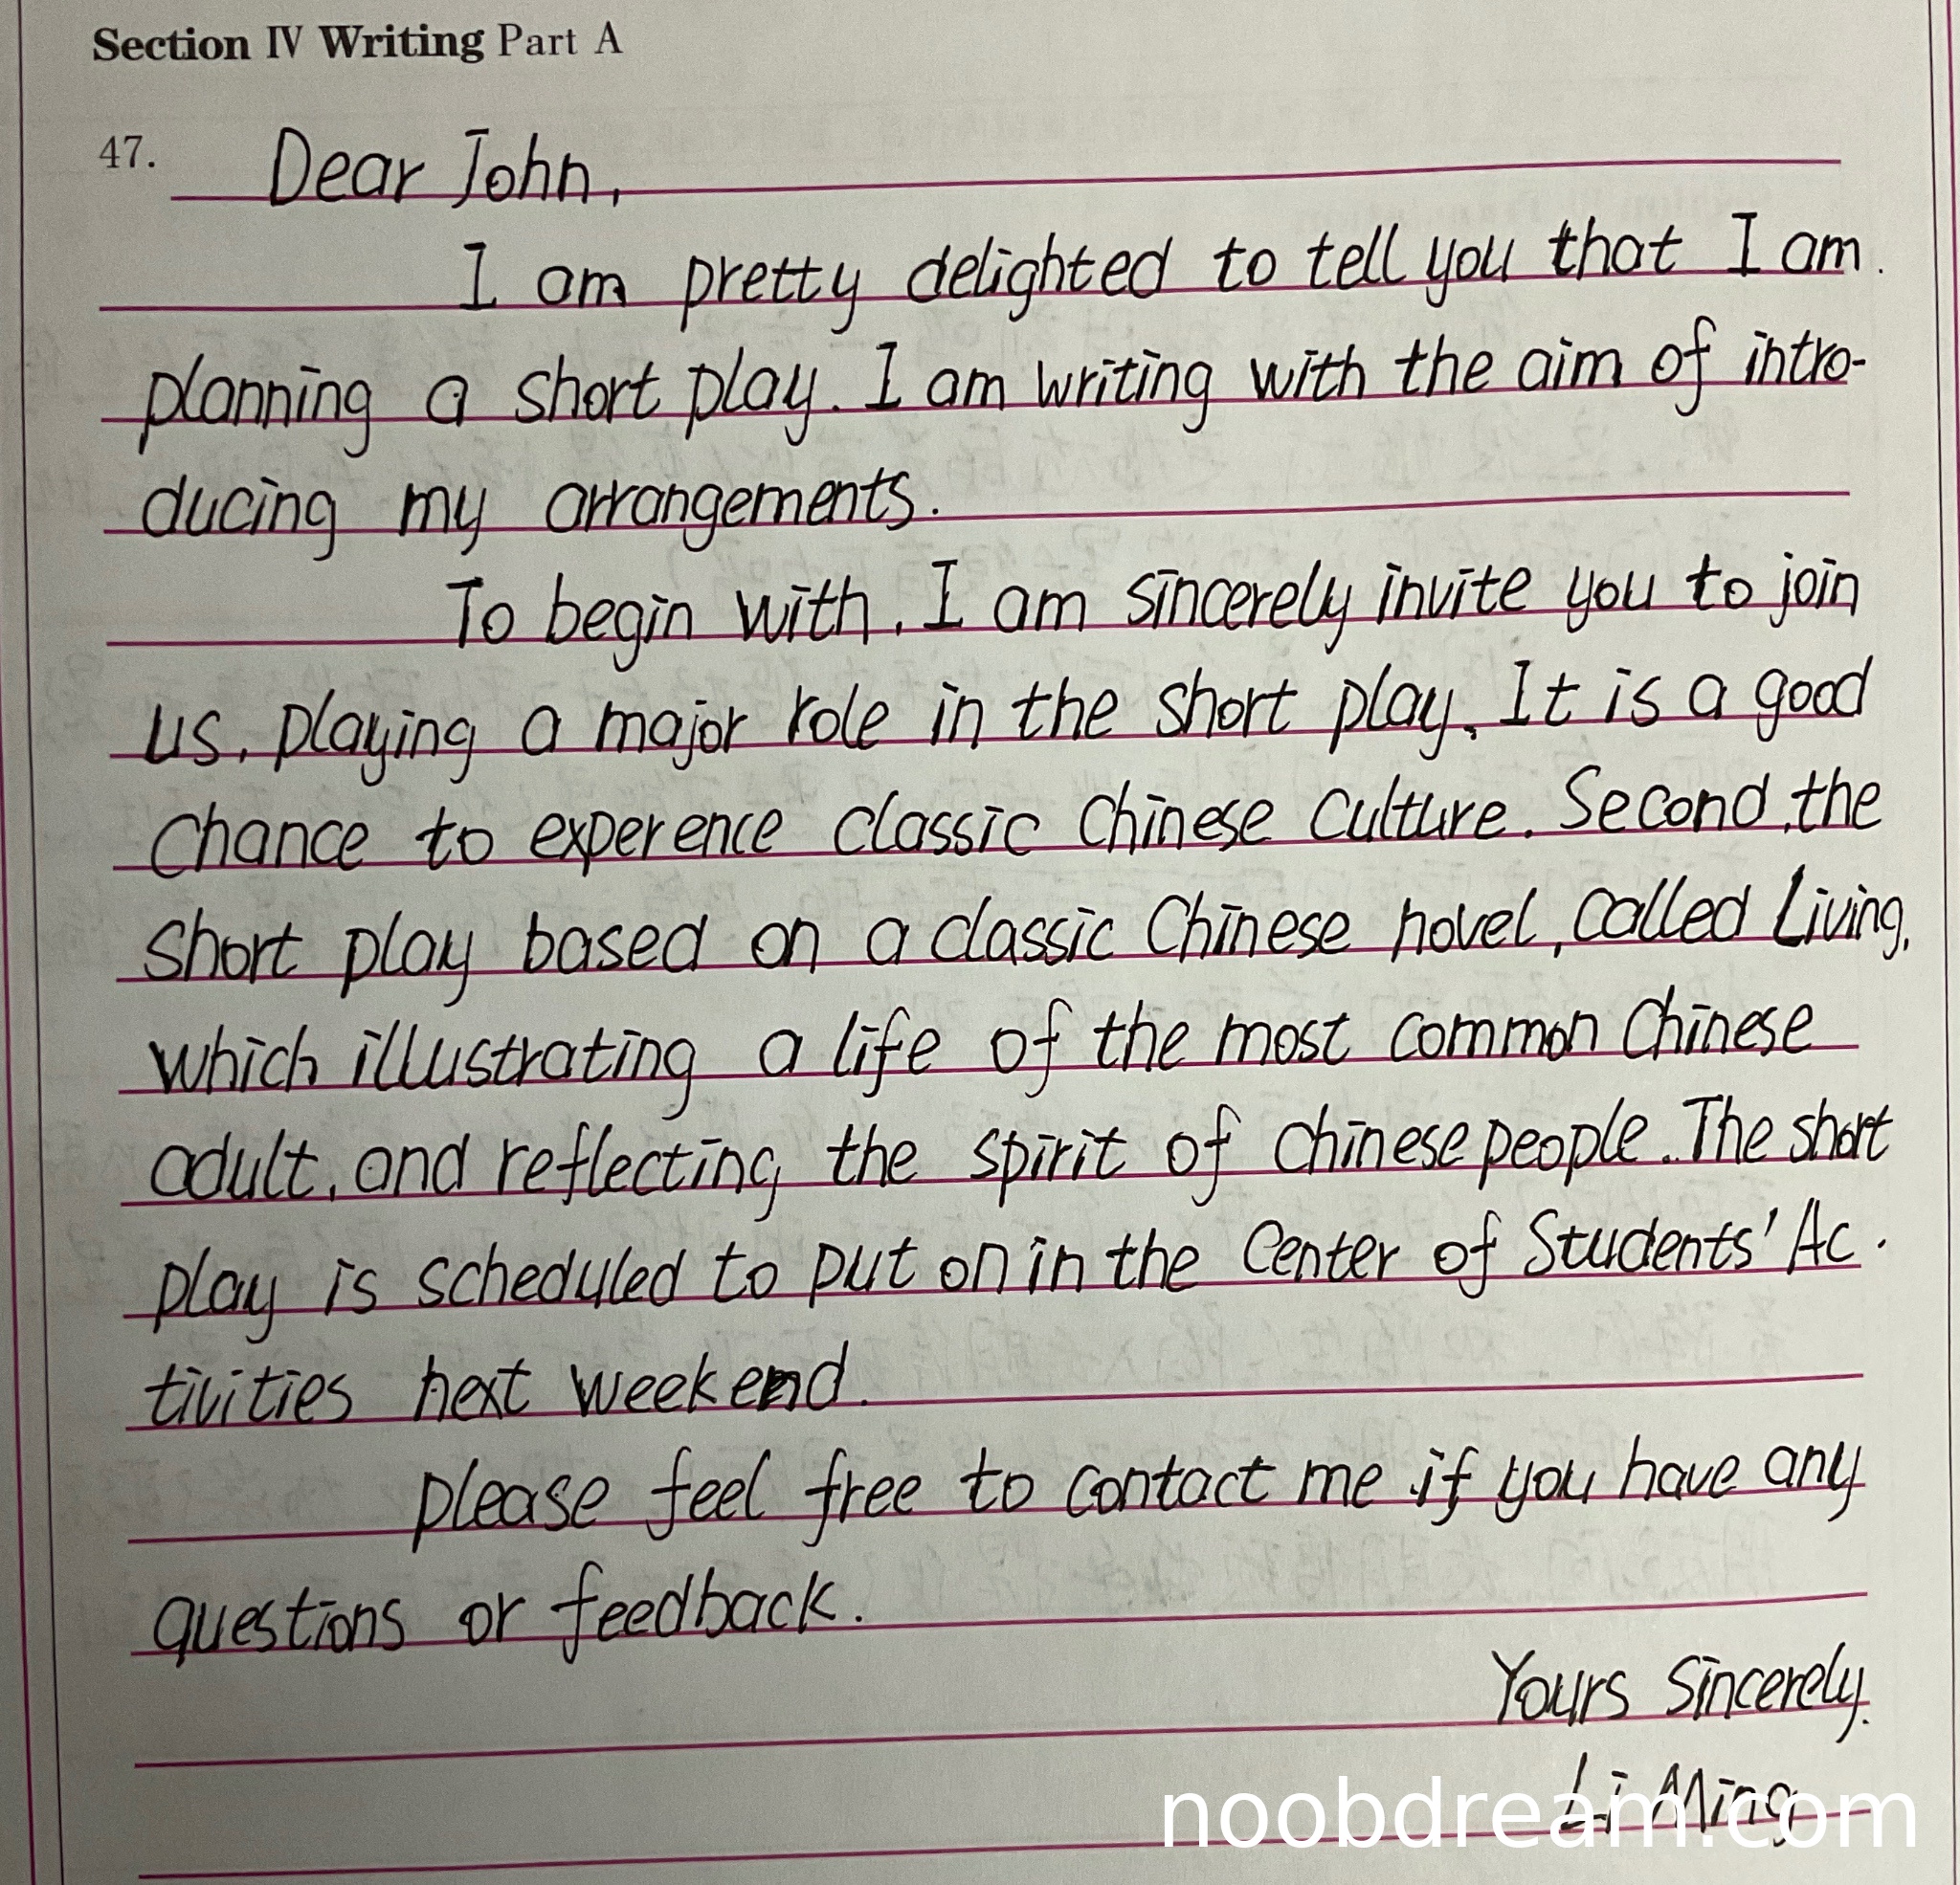 Section IV Writing Part A
47. Dear John,
I am pretty delighted to tell you that I am
planning a short play. I am writing with the aim of intro-
ducing my arrangements.
To begin with, I am sincerely invite you to join
us, playing a major role in the short play. It is a good
chance to experence classic Chinese culture. Second, the
short play based on a classic Chinese novel, called Living,
which illustrating a life of the most common Chinese
adult, and reflecting the spirit of Chinese people. The short
play is scheduled to put on in the Center of Students' Ac-
tivities next weekend.
please feel free to contact me if you have any
questions or feedback.
Yours Sincerely,
Li Ming
noobdream.com